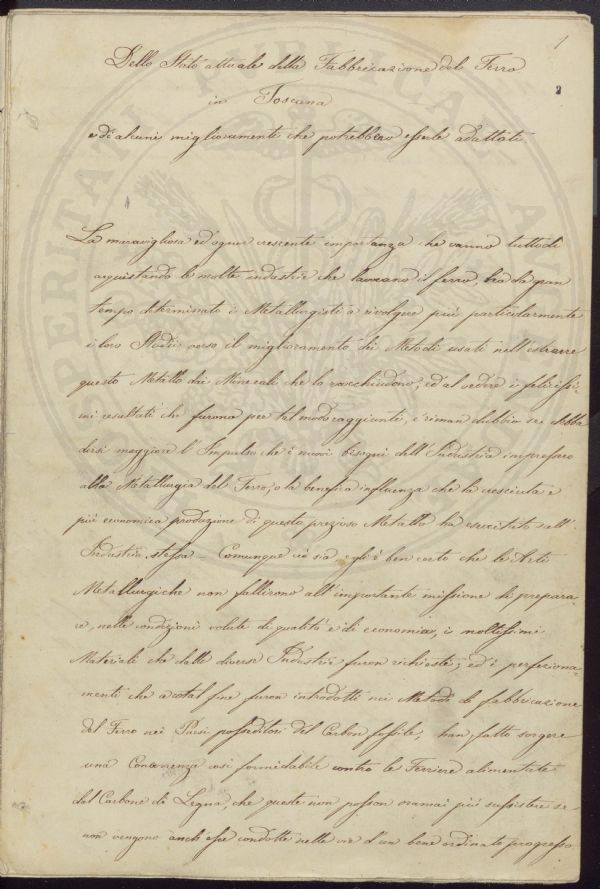 1
2
Dello Stato attuale della Fabbricazione del Ferro
in Toscana
e di alcuni miglioramenti che potrebbero esserle adattati.
La maravigliosa ed ognor crescente importanza che vanno tuttodì
acquistando le molte industrie che lavorano il ferro, ha da gran
tempo determinato i Metallurgisti a rivolgere più particolarmente
i loro Studii verso il miglioramento dei Metodi usati nell'estrarre
questo Metallo dai Minerali che lo racchiudono; ed al vedere i felicissi-
mi resultati che furono per tal modo raggiunti, riman dubbio se debba
dirsi maggiore l'Impulso che i nuovi bisogni dell'Industria impressero
alla Metallurgia del Ferro, o la benefica influenza che la cresciuta e
più economica produzione di questo prezioso Metallo ha esercitato sull'
Industria stessa – Comunque ciò sia egli è ben certo che le Arti
Metallurgiche non fallirono all'importante missione di prepara-
re, nelle condizioni volute di qualità e di economia, i moltissimi
Materiali che dalle diverse Industrie furon richieste; ed i perfeziona-
menti che a cotal fine furon introdotti nei Metodi di fabbricazione
del Ferro nei Paesi posseditori del Carbon fossile, han fatto sorgere
una Concorrenza così formidabile contro le Ferriere alimentate
dal Carbone di Legna, che queste non posson oramai più sussistere se
non vengono anch'esse condotte nelle vie d'un bene ordinato progresso